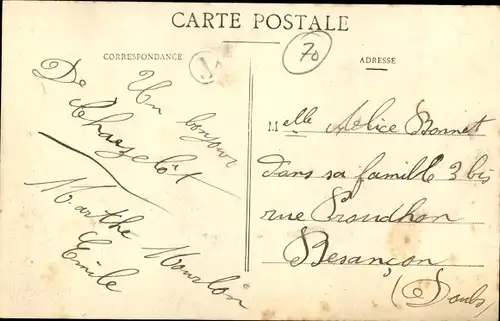 CARTE POSTALE
CORRESPONDANCE
ADRESSE
70
Un bonjour
De Chazelot
Marthe Mourlon
Emile
Melle Alice Bonnet
Dans sa famille 3 bis
rue Proudhon
Besançon
(Doubs)